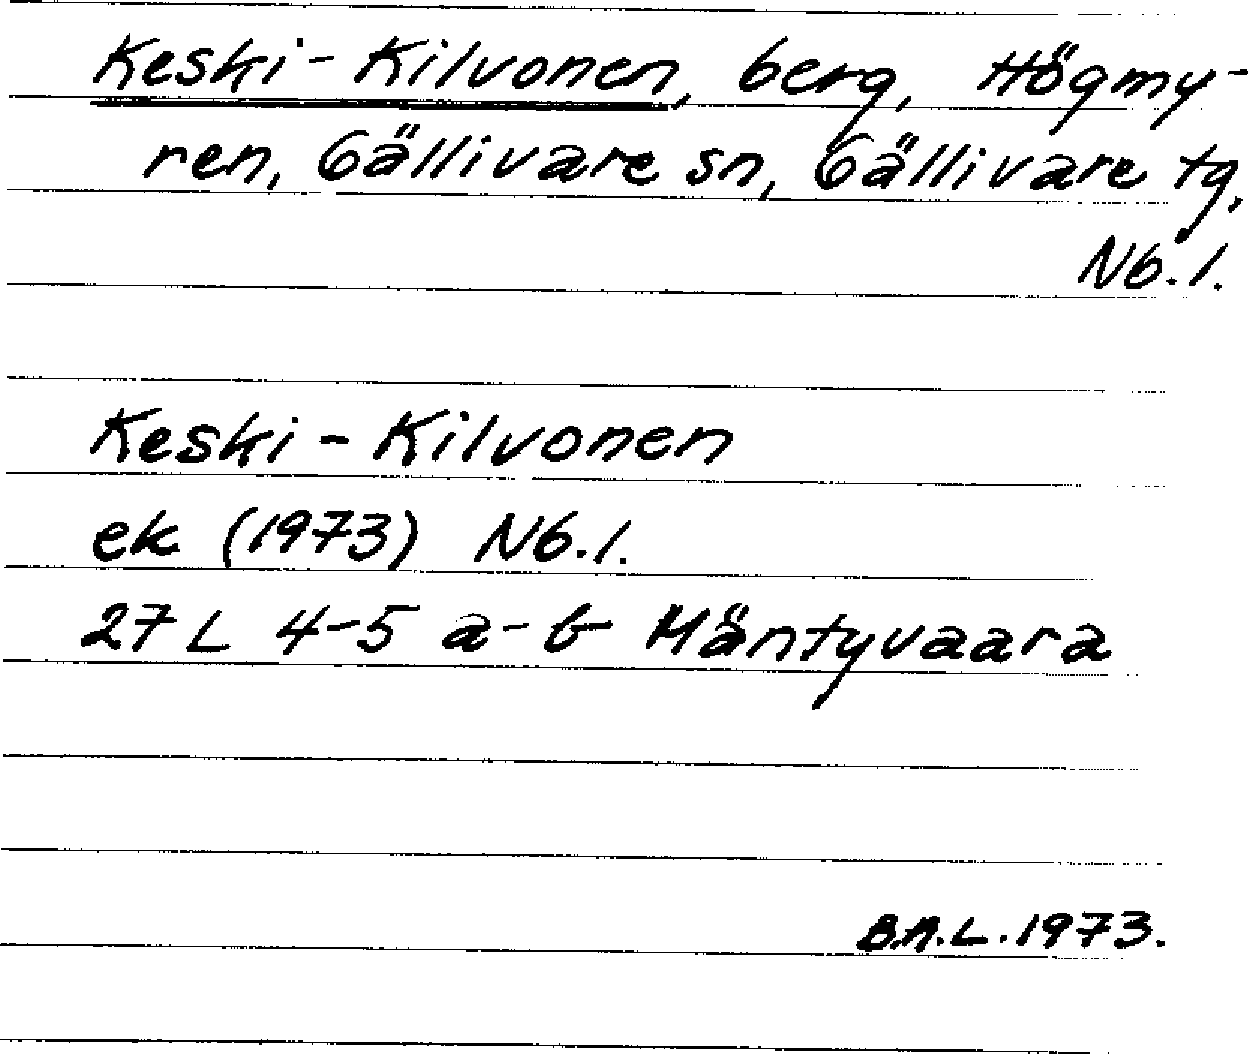 Keski-Kilvonen, berg, Högmy-
ren, Gällivare sn, Gällivare tg,
Nb.l.
Keski-Kilvonen
ek (1973) Nb.l.
27 L 4-5 a-b Mäntyvaara
B.A.L. 1973.